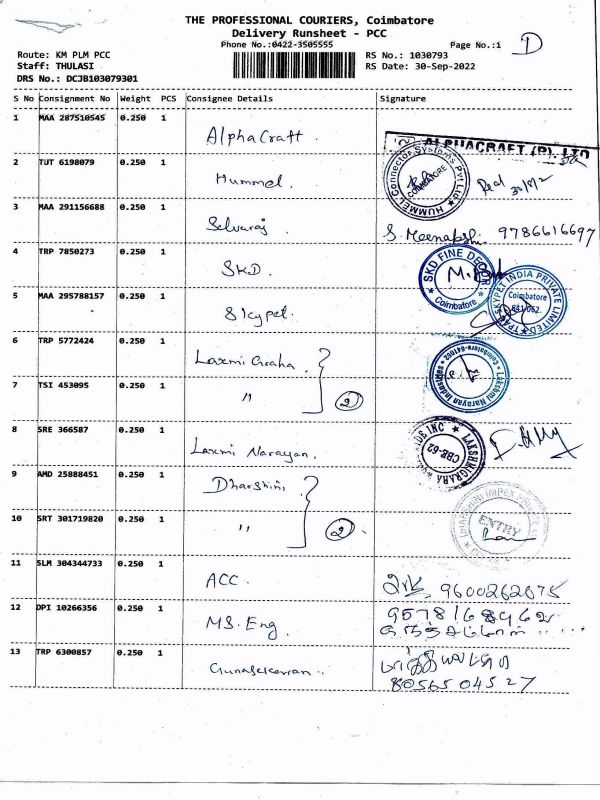 THE PROFESSIONAL COURIERS, Coimbatore
Delivery Runsheet - PCC
Phone No.:0422-3505555
Page No.:1 D
Route: KM PLM PCC
RS No.: 1030793
Staff: THULASI
RS Date: 30-Sep-2022
DRS No.: DCJB103079301
S No Consignment No Weight PCS Consignee Details Signature
1 MAA 287510545 0.250 1 AlphaCraft. ALPHACRAFT (P) LTD
2 TUT 6198079 0.250 1 Hummel. HUMMEL Connector Systems Pvt Ltd COIMBATORE
3 MAA 291156688 0.250 1 Selvaraj S. Meenakshi 9786616697
4 TRP 7850273 0.250 1 SKD. SKD FINE DECOR Coimbatore
5 MAA 295788157 0.250 1 Skypet. SKYPET INDIA PRIVATE LIMITED Coimbatore
6 TRP 5772424 0.250 1 Laxmi Graha
7 TSI 453095 0.250 1 " 2 Lakshmi Narayan Industries Coimbatore-641062
8 SRE 366587 0.250 1 Laxmi Narayan. LAKSHMIGRAHA INC CBE-62
9 AMD 25888451 0.250 1 Dharshini
10 SRT 301719820 0.250 1 " 2 ENTRY
11 SLM 304344733 0.250 1 ACC. 9600262075
12 DPI 10266356 0.250 1 MS. Eng.
13 TRP 6300857 0.250 1 Gunasekaran..
8056504527